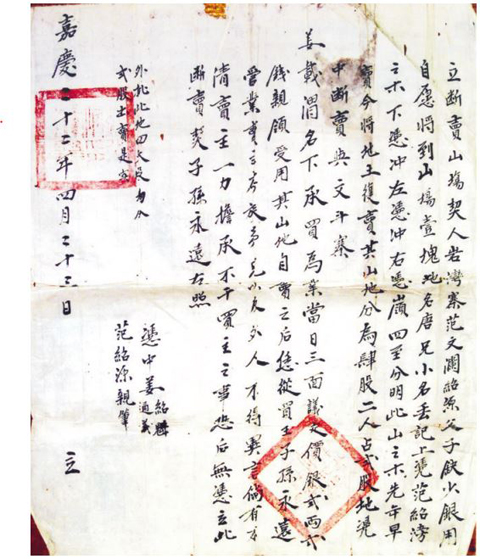 立断賣山塲契人岩灣寨范文瀾紹源父子缺少銀用
自愿将到山塲壹塊地名唐兄小名丢記上凴范紹滂
之木下凴冲左凴冲右凴嶺四至分明此山之木先年早
賣今将地主復賣其山地分為肆股二人占弍股地凴
中断賣與文斗寨
姜載渭名下承買為業當日三面議定價銀弍両弍
錢親領受用其山地自賣之后恁從買主子孫永遠
管業賣主房族弟兄以及外人不得異言倘有不
清賣主一力擔承不干買主之事恐后無凴立此
断賣契子孫永遠存照
外批此地四大股均分
弍股出賣是實
憑中姜紹
通義
范紹源親筆
嘉慶二十二年四月二十三日 立